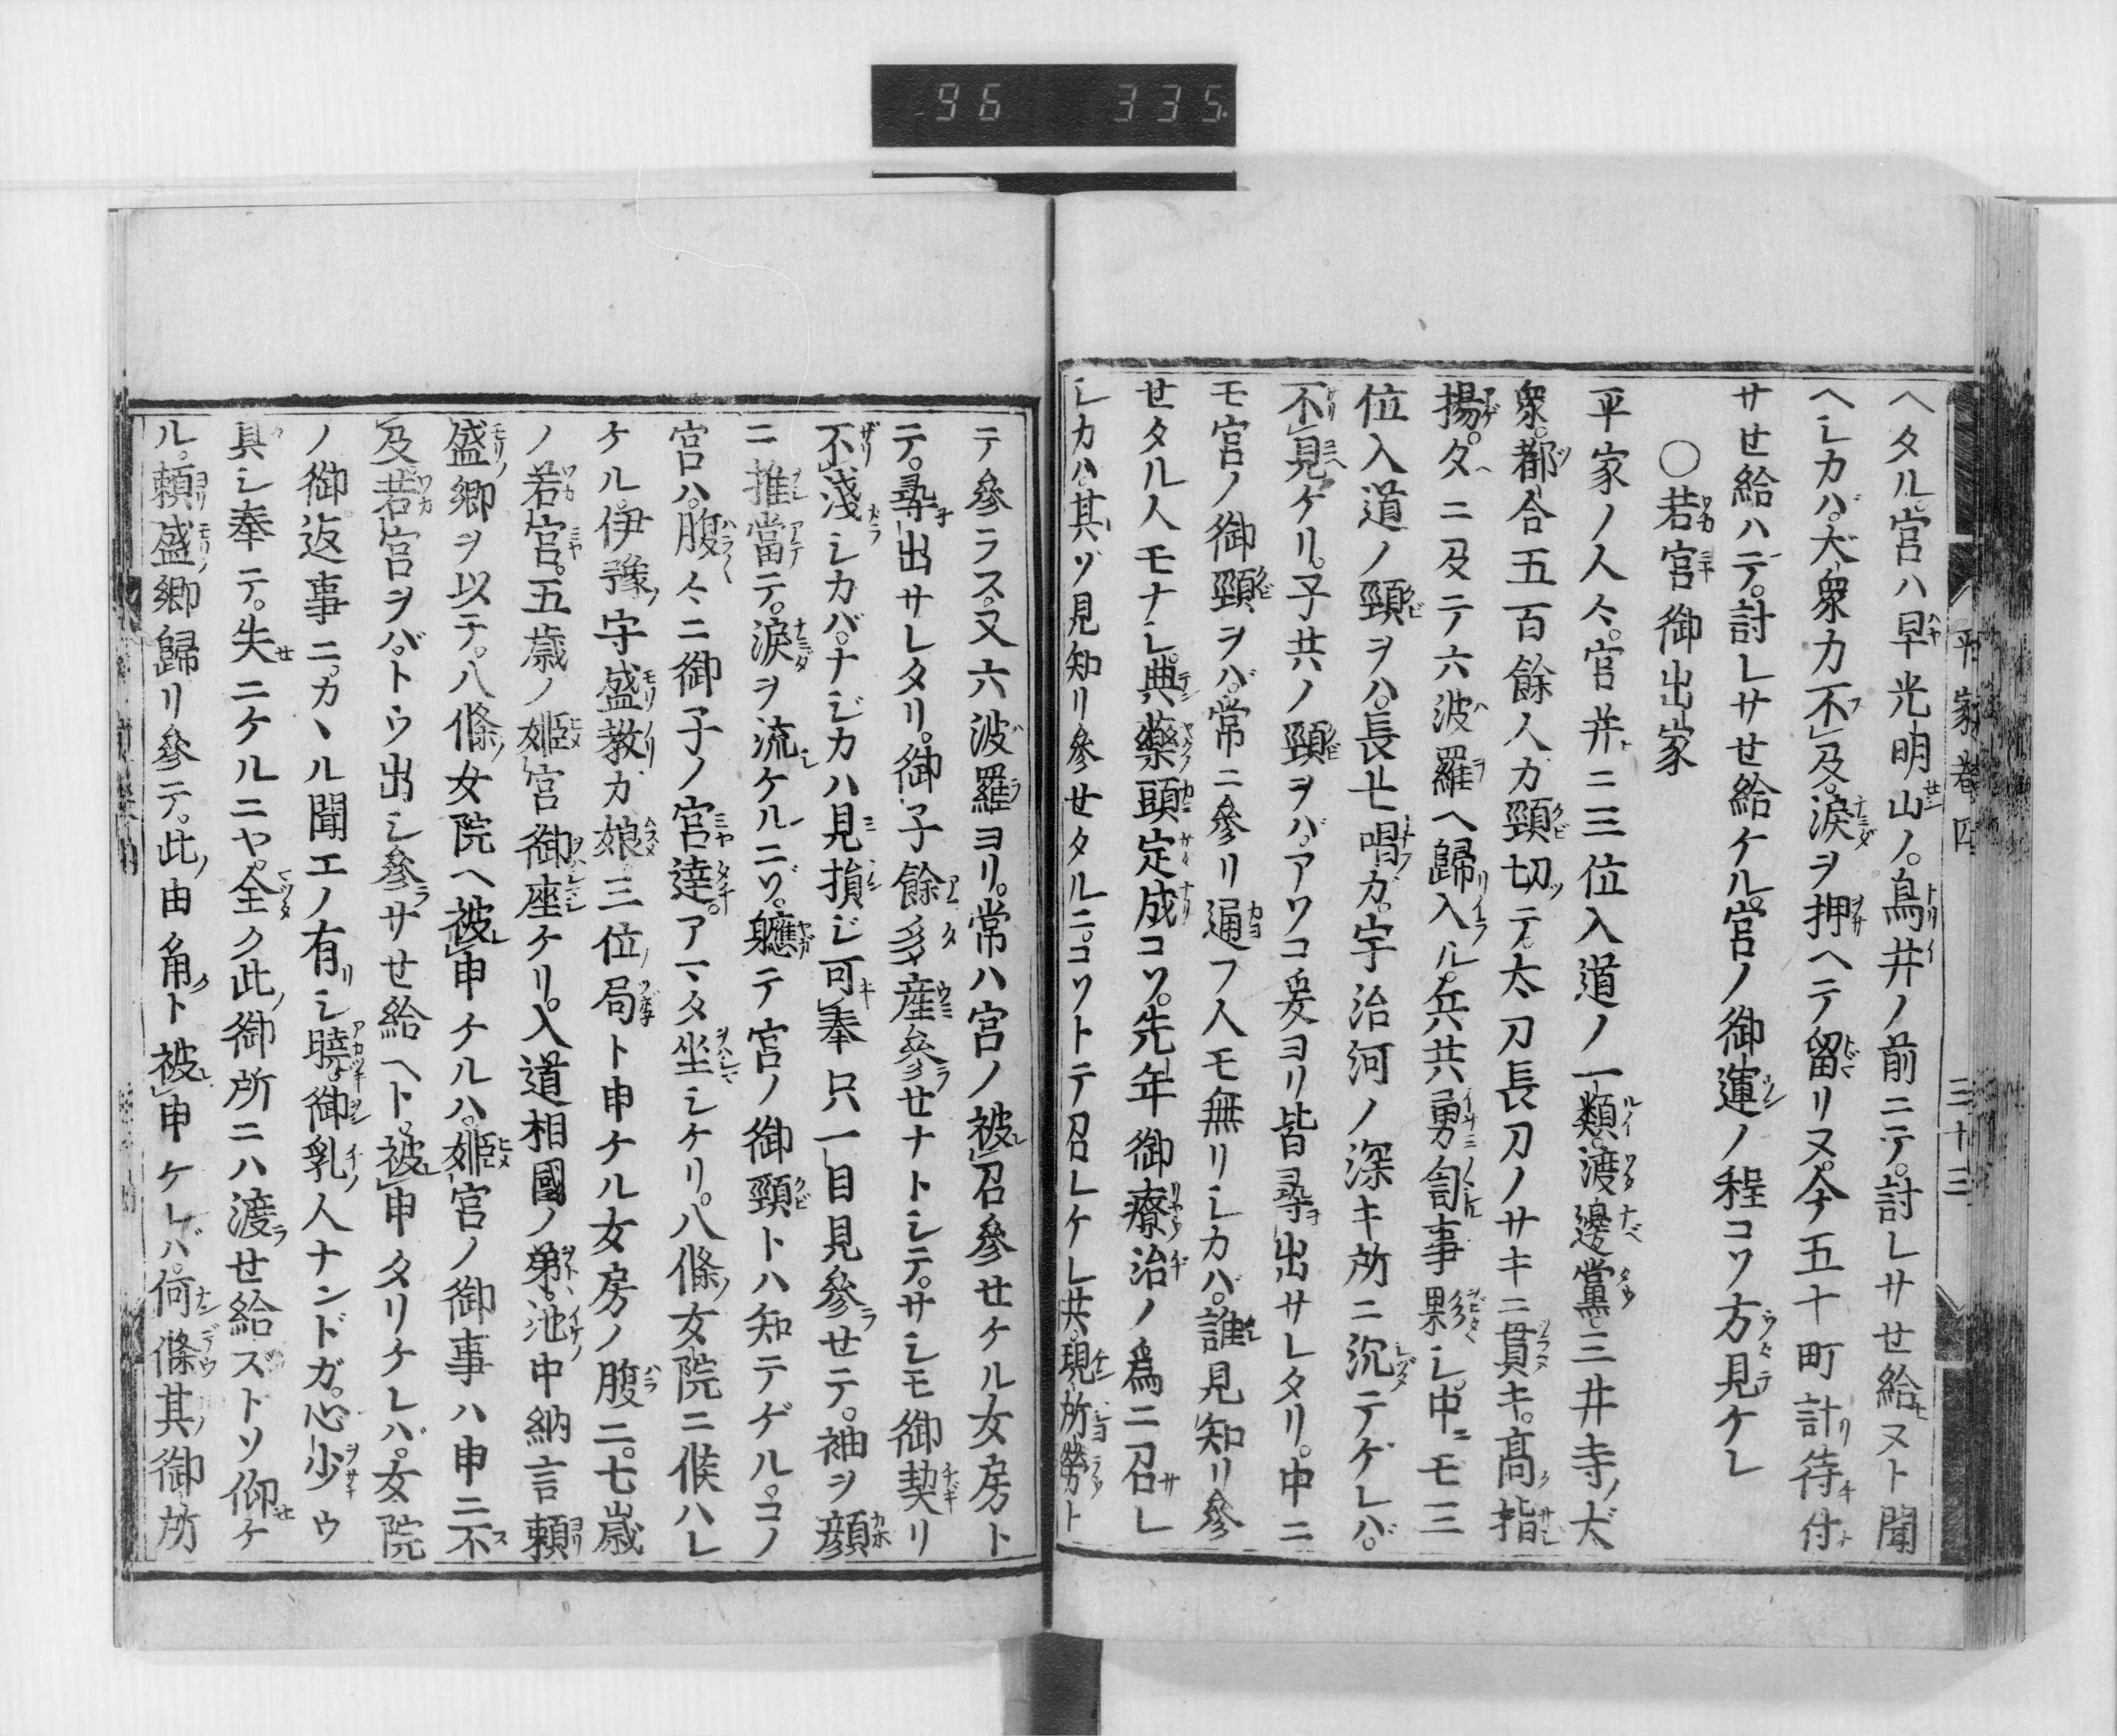 96 335.
平家巻四 三十三
ヘタル。宮ハ早光明山ノ。鳥井ノ前ニテ。討レサせ給ヌト聞
ヘシカバ。大衆力不及。涙ヲ押ヘテ留リヌ。今五十町計待付
サせ給ハデ。討レサせ給ケル。宮ノ御運ノ程コソ方見ケレ
〇若宮御出家
平家ノ人々。宮并ニ三位入道ノ一類。渡邊黨。三井寺ノ大
衆。都合五百餘人カ頸切テ。太刀長刀ノサキニ貫キ。高指
揚。夕ニ及テ六波羅ヘ歸入ル。兵共勇訇事夥シ。中ニモ三
位入道ノ頸ヲハ。長七唱ガ。宇治河ノ深キ所ニ沉テゲレバ。
不見ケリ。子共ノ頸ヲバ。アソコ爰ヨリ皆尋出サレタリ。中ニ
モ宮ノ御頸ヲバ。常ニ參リ通フ人モ無リシカバ。誰見知リ參
せタル人モナシ。典藥頭定成コソ。先年御療治ノ爲ニ召レ
シカハ。其ソ見知リ參せタルニコソトテ召レケレ共。現所勞ト
テ參ラス。又六波羅ヨリ。常ハ宮ノ被召參せケル女房ト
テ。尋出サレタリ。御子餘多産參せナトシテ。サシモ御契リ
不淺シカバ。ナジカハ見損ジ可奉只一目見參せテ。袖ヲ顔
ニ推當テ。涙ヲ流ケルニゾ。軈テ宮ノ御頸トハ知テゲル。コノ
宮ハ。腹々ニ御子ノ宮達。アマタ坐シケリ。八條女院ニ候ハレ
ケル。伊豫守盛教カ娘三位局ト申ケル女房ノ腹ニ。七歳
ノ若宮。五歳ノ姫宮御座ケリ。入道相國ノ弟。池中納言頼
盛卿ヲ以テ。八條女院ヘ被申ケルハ。姫宮ノ御事ハ申ニ不
及若宮ヲバ。トウ出シ參サせ給ヘト。被申タリケレバ。女院
ノ御返事ニ。カヽル聞エノ有シ曉。御乳人ナンドガ。心少ウ
具シ奉テ。失ニケルニヤ。全ク此御所ニハ渡せ給ズトソ仰ケ
ル。頼盛卿歸リ參テ。此由角ト被申ケレバ。何條其御所